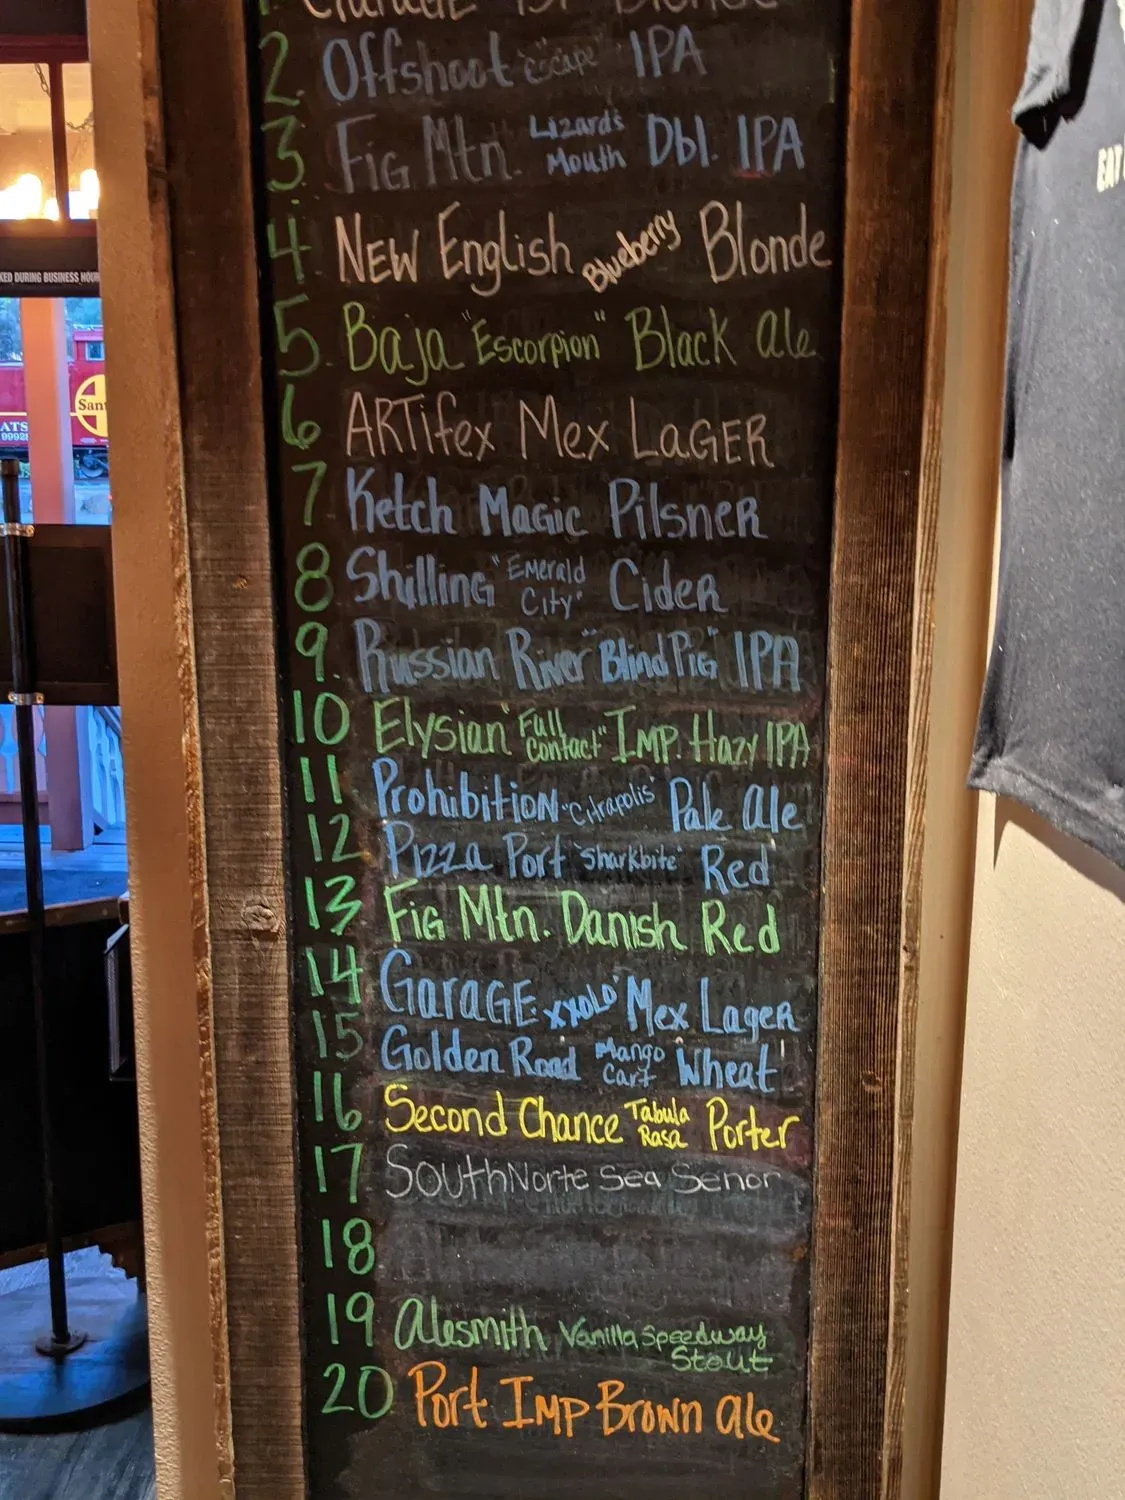 2. Offshoot "escape" IPA
3. Fig Mtn. Lizard's Mouth Dbl. IPA
4. New English Blueberry Blonde
5. Baja "Escorpion" Black Ale
6. ARTifex Mex LAGER
7. Ketch Magic Pilsner
8. Shilling "Emerald City" Cider
9. Russian River "Blind Pig" IPA
10 Elysian "Full Contact" IMP. Hazy IPA
11 Prohibition "Citrapolis" Pale Ale
12 Pizza Port "Sharkbite" Red
13 Fig Mtn. Danish Red
14 GaraGE "XXOLO" Mex Lager
15 Golden Road Mango Cart Wheat
16 Second Chance Tabula Rasa Porter
17 SouthNorte Sea Senor
18
19 Alesmith Vanilla Speedway Stout
20 Port Imp Brown Ale
KED DURING BUSINESS HOUR
San
ATS
9992
EAT